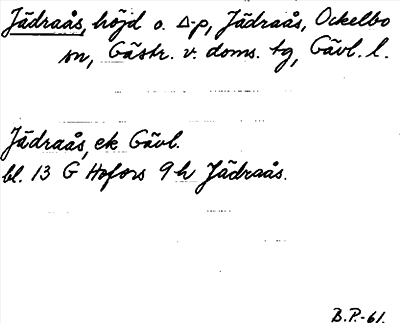 Jädraås, höjd o. Δ-p, Jädraås, Ockelbo
sn, Gästr. v. doms. tg, Gävl. l.
Jädraås, ek Gävl.
bl. 13 G Hofors 9 h Jädraås.
B.P.-61.